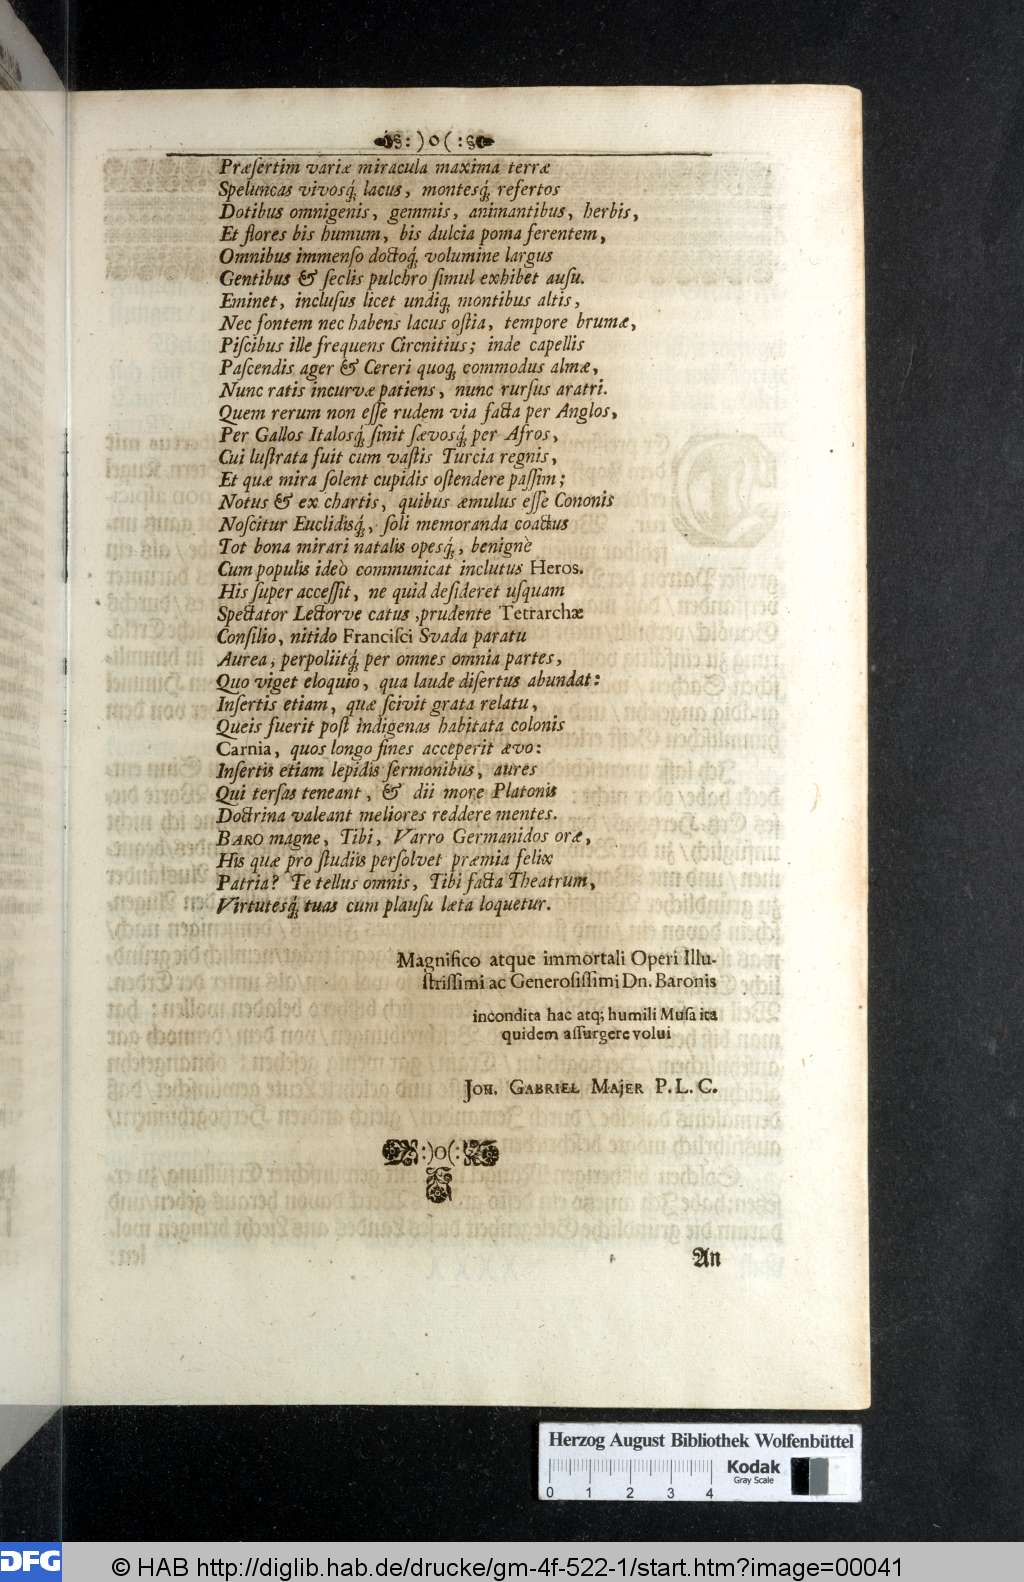 :)o(:
Præſertim variæ miracula maxima terræ
Speluncas vivosq́;, lacus, montesq́;, refertos
Dotibus omnigenis, gemmis, animantibus, herbis,
Et flores bis humum, bis dulcia poma ferentem,
Omnibus immenſo doctoq́; volumine largus
Gentibus & ſeclis pulchro ſimul exhibet auſu.
Eminet, incluſus licet undiq; montibus altis,
Nec fontem nec habens lacus oſtia, tempore brumæ,
Piſcibus ille frequens Circnitius; inde capellis
Paſcendis ager & Cereri quoq; commodus almæ,
Nunc ratis incurvæ patiens, nunc rurſus aratri.
Quem rerum non eſſe rudem via facta per Anglos,
Per Gallos Italosq́; ſinit ſævosq́; per Afros,
Cui luſtrata fuit cum vaſtis Turcia regnis,
Et quæ mira ſolent cupidis oſtendere paſſim;
Notus & ex chartis, quibus æmulus eſſe Cononis
Noſcitur Euclidisq́;, ſoli memoranda coactus
Tot bona mirari natalis opesq́;, benignè
Cum populis ideò communicat inclutus Heros.
His ſuper acceſſit, ne quid deſideret uſquam
Spectator Lectorve catus, prudente Tetrarchæ
Conſilio, nitido Franciſci Svada paratu
Aurea, perpoliitq́; per omnes omnia partes,
Quo viget eloquio, qua laude diſertus abundat:
Inſertis etiam, quæ ſcivit grata relatu,
Queis fuerit poſt indigenas habitata colonis
Carnia, quos longo fines acceperit ævo:
Inſertis etiam lepidis ſermonibus, aures
Qui terſas teneant, & dii more Platonis
Doctrina valeant meliores reddere mentes.
BARO magne, Tibi, Varro Germanidos oræ,
His quæ pro ſtudiis perſolvet præmia felix
Patria? Te tellus omnis, Tibi facta Theatrum,
Virtutesq́; tuas cum plauſu læta loquetur.
Magnifico atque immortali Operi Illu-
ſtriſſimi ac Generoſiſſimi Dn. Baronis
incondita hac atq; humili Muſa ita
quidem aſſurgere volui
JOH. GABRIEL MAJER P. L. C.
:)o(:
An
Herzog August Bibliothek Wolfenbüttel
Kodak
Gray Scale
0 1 2 3 4
DFG
© HAB http://diglib.hab.de/drucke/gm-4f-522-1/start.htm?image=00041